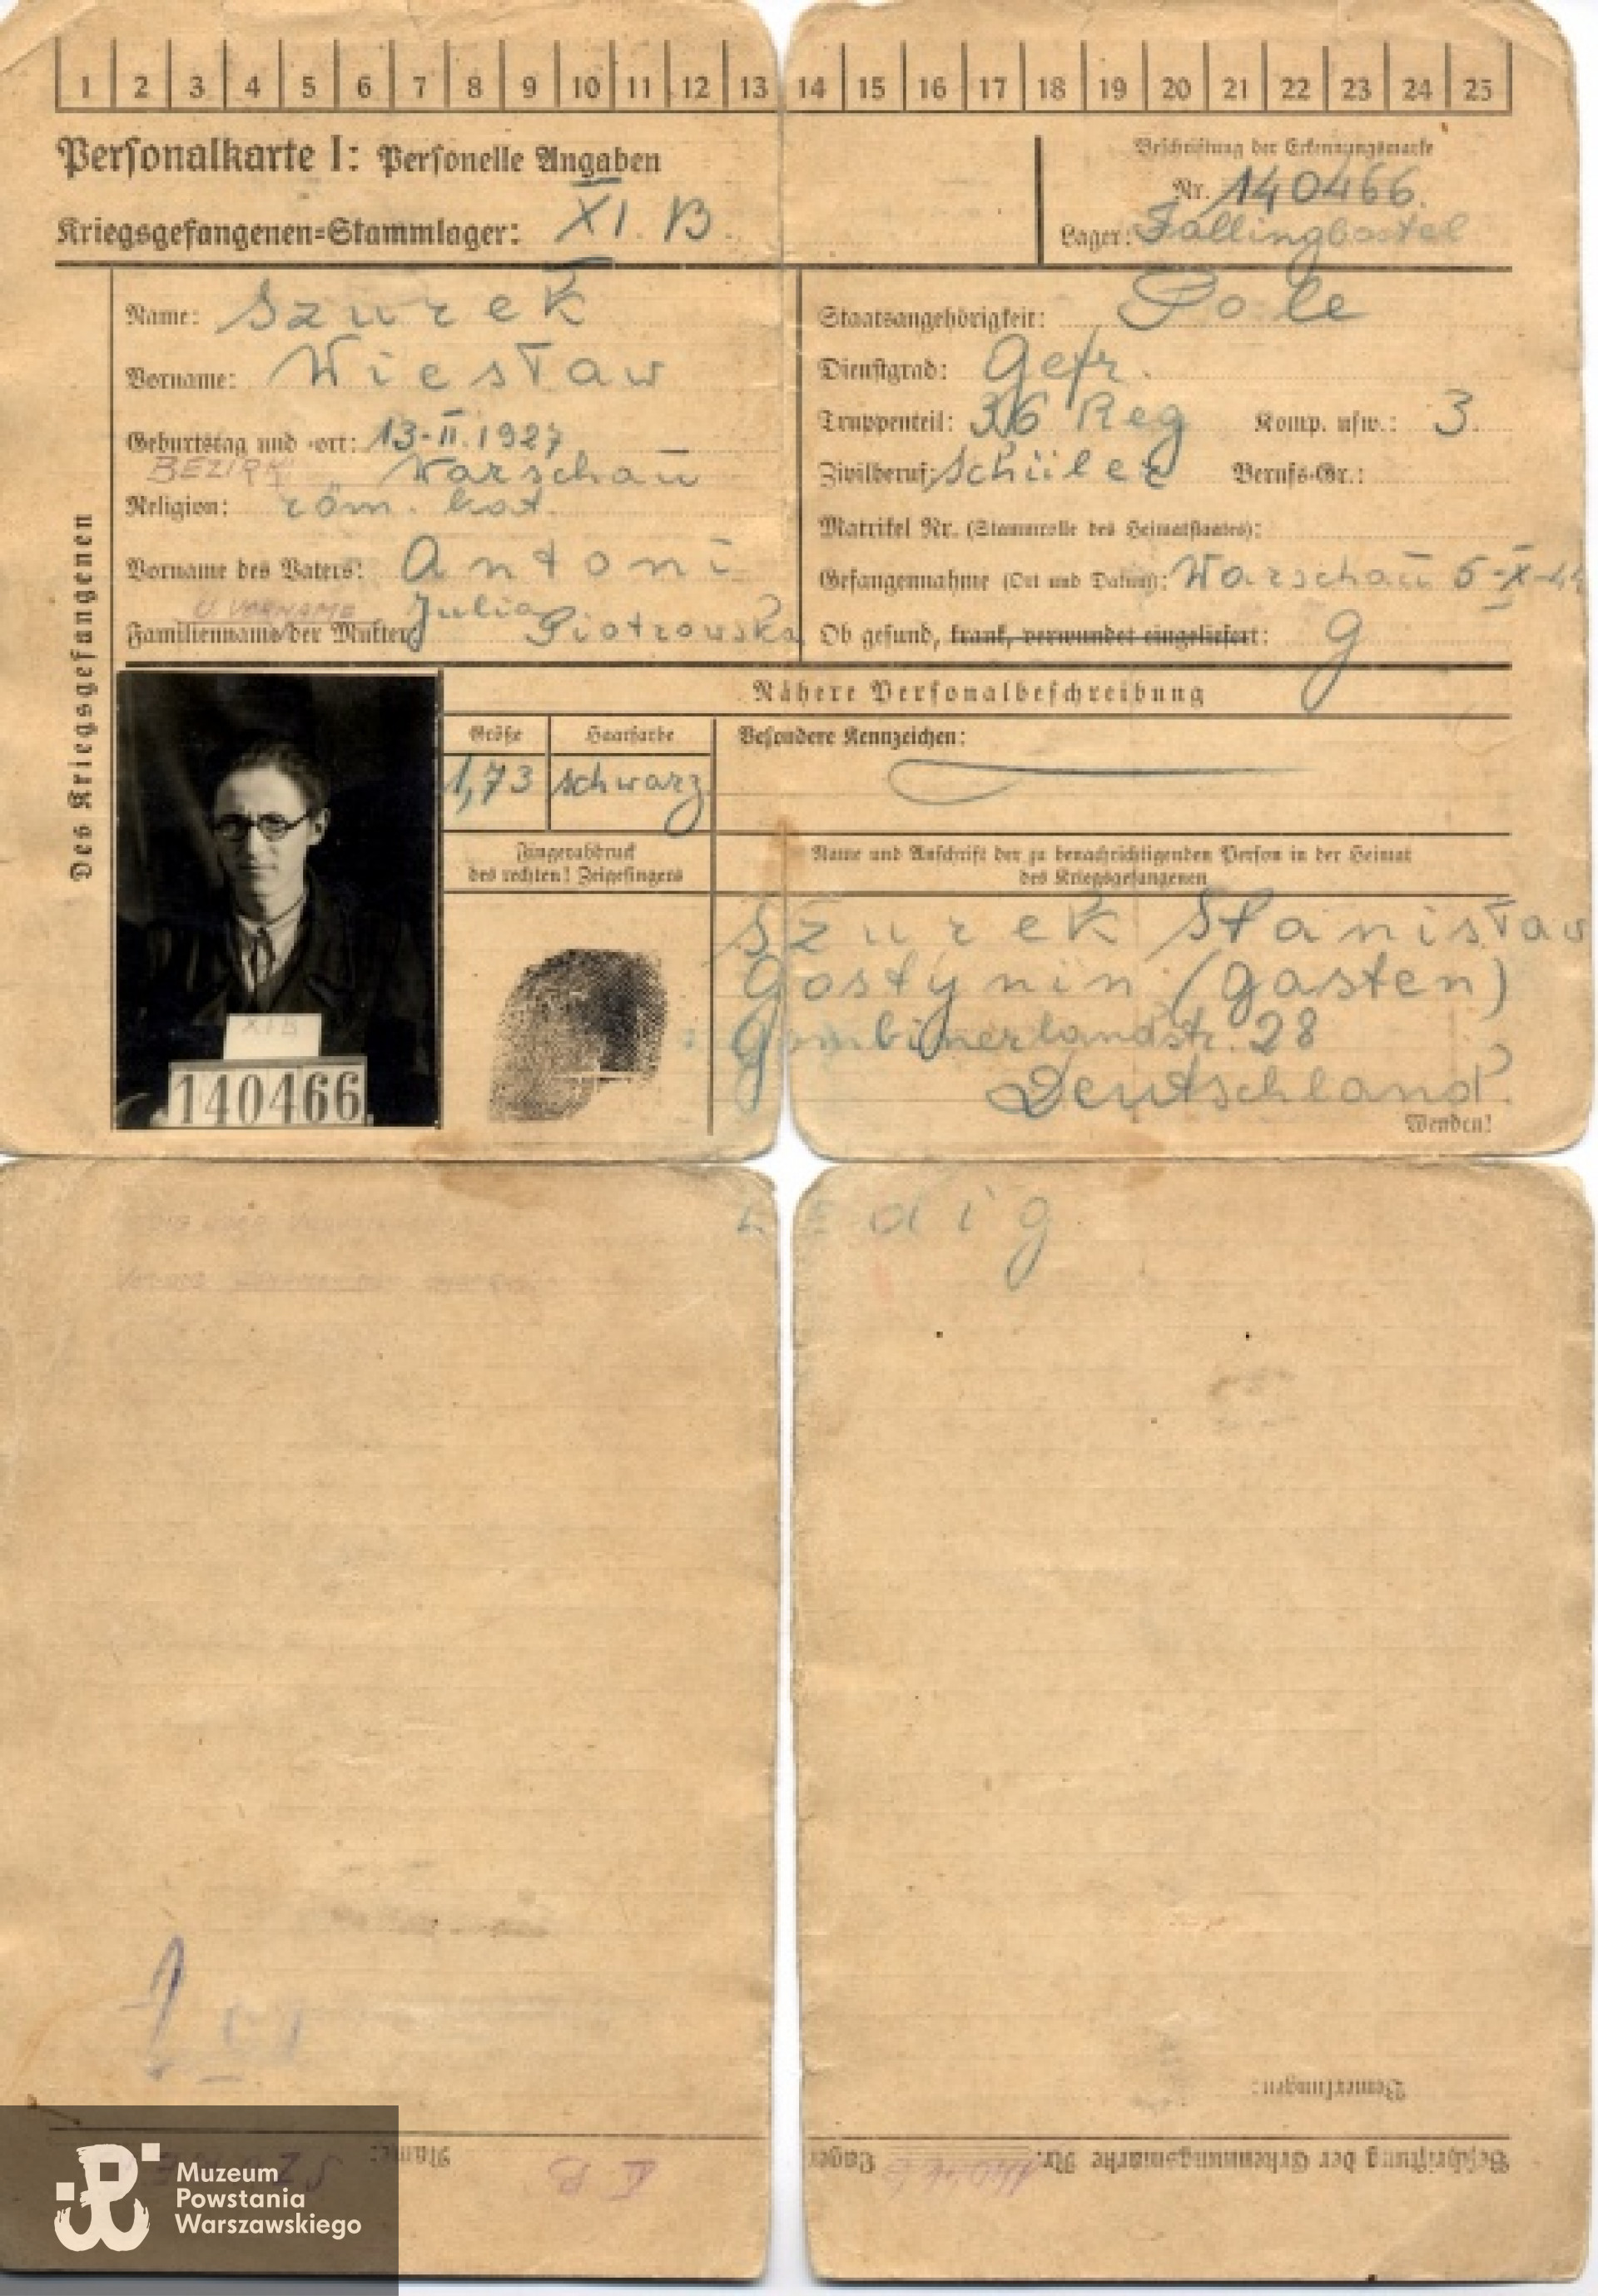 1 2 3 4 5 6 7 8 9 10 11 12 13 14 15 16 17 18 19 20 21 22 23 24 25
Personalkarte I: Personelle Angaben
Kriegsgefangenen-Stammlager: XI. B.
Beschriftung der Erkennungsmarke
Nr. 140466.
Lager: Fallingbostel
Des Kriegsgefangenen
Name: Szurek
Vorname: Wiesław
Geburtstag und -ort: 13-II.1927
BEZIRK Warschau
Religion: röm. kat.
Vorname des Vaters: Antoni
U. VORNAME Julia
Familienname der Mutter: Piotrowska
Staatsangehörigkeit: Pole
Dienstgrad: Gefr.
Truppenteil: 36 Reg Komp. usw.: 3.
Zivilberuf: Schüler Berufs-Gr.:
Matrikel Nr. (Stammrolle des Heimatstaates):
Gefangennahme (Ort und Datum): Warschau 5-X-44
Ob gesund, krank, verwundet eingeliefert: g
Nähere Personalbeschreibung
Größe Haarfarbe Besondere Kennzeichen:
1,73 schwarz
Fingerabdruck
des rechten! Zeigefingers
Name und Anschrift der zu benachrichtigenden Person in der Heimat
des Kriegsgefangenen
Szurek Stanisław
Gostynin (Gasten)
Gombinerlandstr. 28
Deutschland.
Wenden!
XIB
140466
Ledig
Bemerkungen:
Beschriftung der Erkennungsmarke Nr. Lager
Name:
Muzeum
Powstania
Warszawskiego